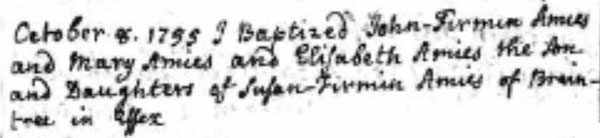 October 8. 1795 I Baptized John-Firmin Amies
and Mary Amies and Elisabeth Amies the Son
and Daughters of Susan-Firmin Amies of Brain-
tree in Essex